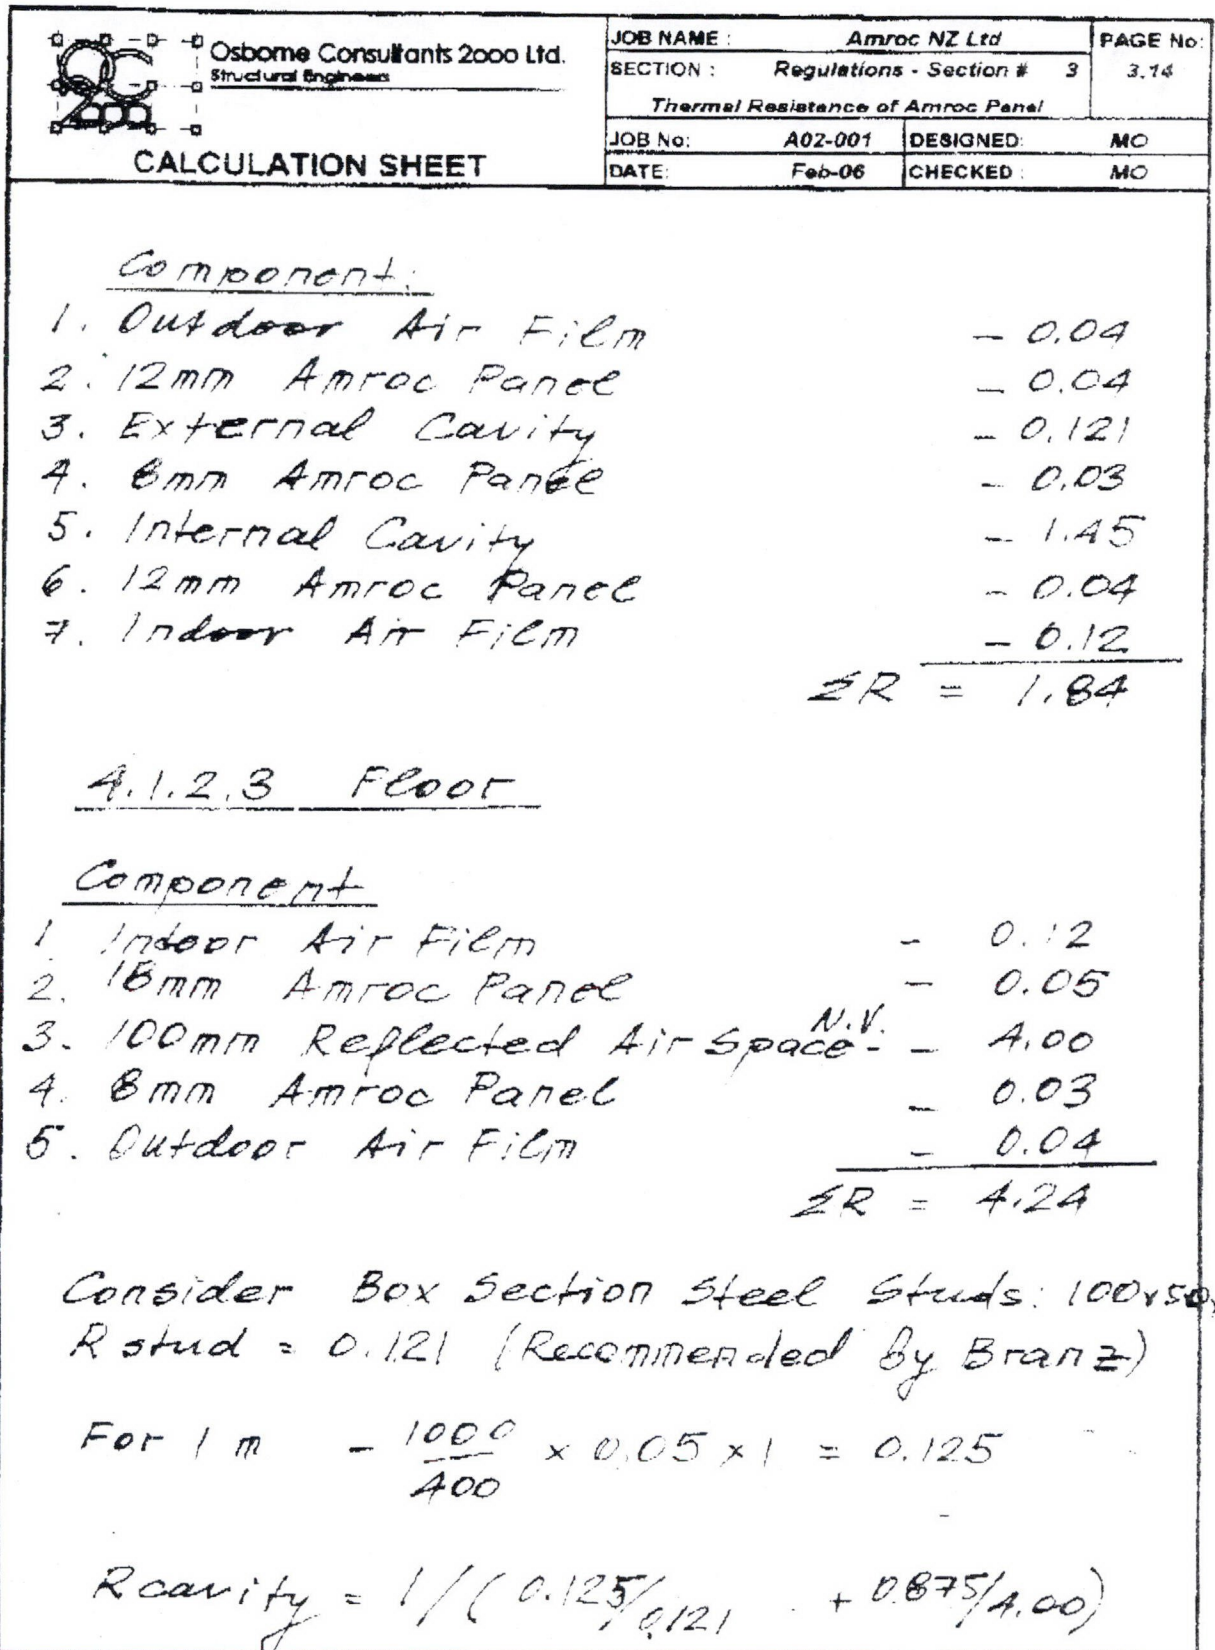 Osborne Consultants 2000 Ltd.
Structural Engineers
CALCULATION SHEET
JOB NAME : Amroc NZ Ltd
PAGE No:
SECTION : Regulations - Section # 3
3.14
Thermal Resistance of Amroc Panel
JOB No: A02-001 DESIGNED: MO
DATE: Feb-06 CHECKED : MO
Component:
1. Outdoor Air Film - 0.04
2. 12mm Amroc Panel - 0.04
3. External Cavity - 0.121
4. 8mm Amroc Panel - 0.03
5. Internal Cavity - 1.45
6. 12mm Amroc Panel - 0.04
7. Indoor Air Film - 0.12
ΣR = 1.84
4.1.2.3 Floor
Component
1 Indoor Air Film - 0.12
2. 18mm Amroc Panel - 0.05
3. 100mm Reflected Air Space N.V. - 4.00
4. 8mm Amroc Panel - 0.03
5. Outdoor Air Film - 0.04
ΣR = 4.24
Consider Box Section Steel Studs: 100x50x
R stud = 0.121 (Recommended By Branz)
For 1 m - 1000/400 x 0.05 x 1 = 0.125
R cavity = 1/(0.125/0.121 + 0.875/4.00)